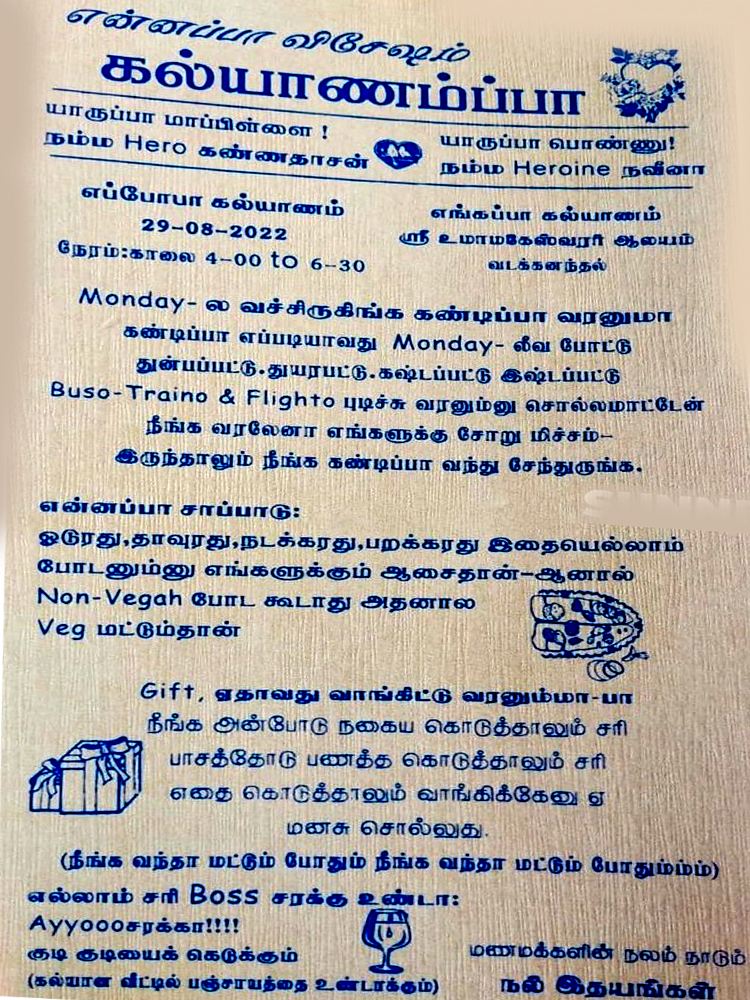 என்னப்பா விசேஷம்
கல்யாணம்ப்பா
யாருப்பா மாப்பிள்ளை !
நம்ம Hero கண்ணதாசன்
யாருப்பா பொண்ணு!
நம்ம Heroine நவீனா
எப்போபா கல்யாணம்
29-08-2022
நேரம்:காலை 4-00 to 6-30
எங்கப்பா கல்யாணம்
ஸ்ரீ உமாமகேஸ்வரரி ஆலயம்
வடக்கனந்தல்
Monday- ல வச்சிருகிங்க கண்டிப்பா வரனுமா
கண்டிப்பா எப்படியாவது Monday- லீவ போட்டு
துன்பப்பட்டு.துயரபட்டு.கஷ்டப்பட்டு இஷ்டப்பட்டு
Buso-Traino & Flighto புடிச்சு வரனும்னு சொல்லமாட்டேன்
நீங்க வரலேனா எங்களுக்கு சோறு மிச்சம்-
இருந்தாலும் நீங்க கண்டிப்பா வந்து சேந்துருங்க.
என்னப்பா சாப்பாடு:
ஓடுரது,தாவுரது,நடக்கரது,பறக்கரது இதையெல்லாம்
போடனும்னு எங்களுக்கும் ஆசைதான்-ஆனால்
Non-Vegah போட கூடாது அதனால
Veg மட்டும்தான்
Gift, ஏதாவது வாங்கிட்டு வரனும்மா-பா
நீங்க அன்போடு நகைய கொடுத்தாலும் சரி
பாசத்தோடு பணத்த கொடுத்தாலும் சரி
எதை கொடுத்தாலும் வாங்கிக்கேனு ஏ
மனசு சொல்லுது.
(நீங்க வந்தா மட்டும் போதும் நீங்க வந்தா மட்டும் போதும்ம்ம்)
எல்லாம் சரி Boss சரக்கு உண்டா:
Ayyoooசரக்கா!!!!
குடி குடியைக் கெடுக்கும்
(கல்யான வீட்டில் பஞ்சாயத்தை உண்டாக்கும்)
மணமக்களின் நலம் நாடும்
நல் இதயங்கள்